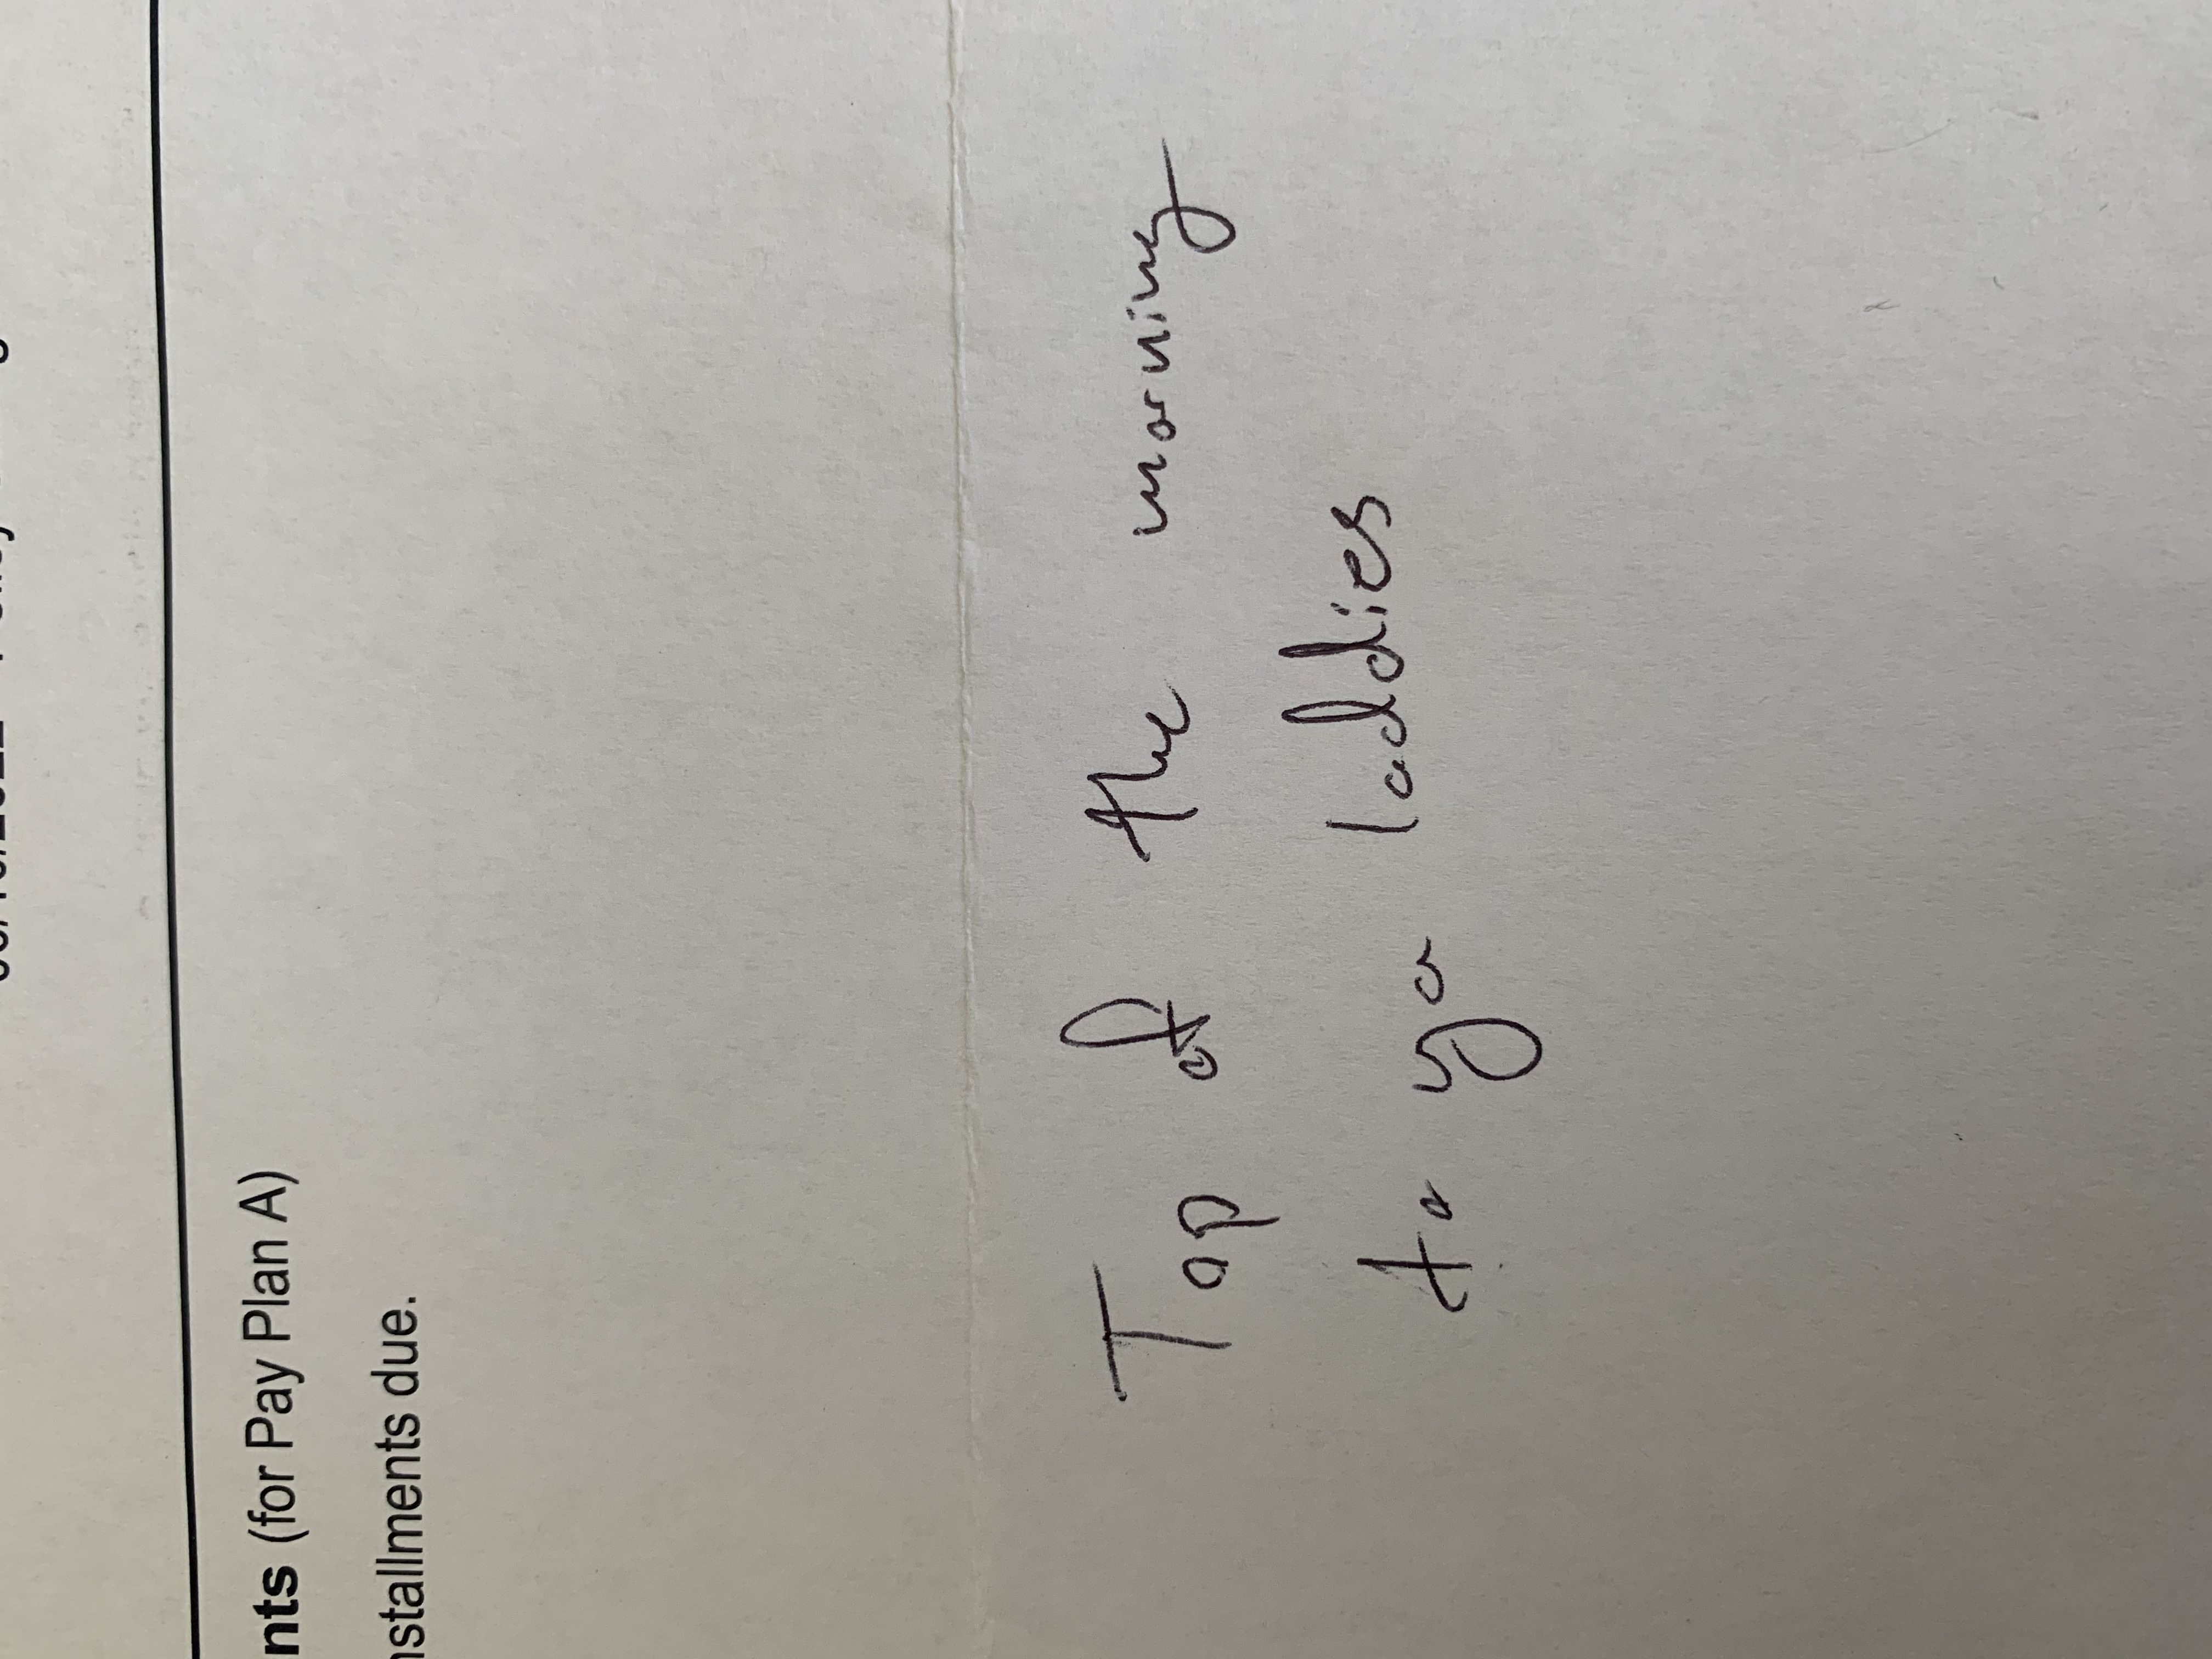 nts (for Pay Plan A)
nstallments due.
Top of the morning
to ya laddies